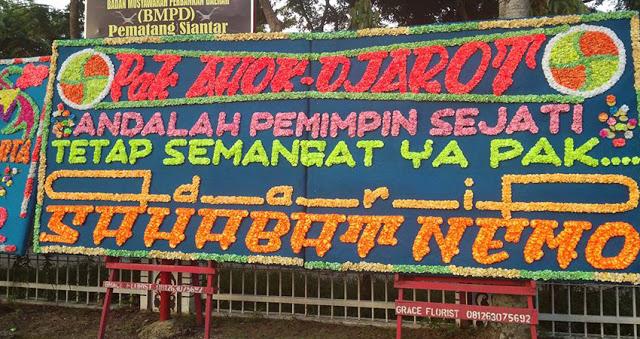 BADAN MUSYAWARAH PERBANKAN DAERAH
(BMPD)
Pematang Siantar
Pak AHOK-DJAROT
ANDALAH PEMIMPIN SEJATI
TETAP SEMANGAT YA PAK....
dari
SAHABAT NEMO
ARTA
GRACE FLORIST 081263075692
GRACE FLORIST 081263075692